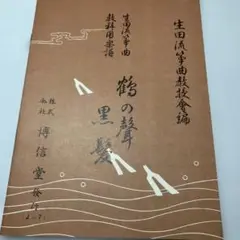 生田流箏曲教授會編
生田流箏曲
教科用楽譜
鶴の聲
黒髪
株式
会社
博信堂發行